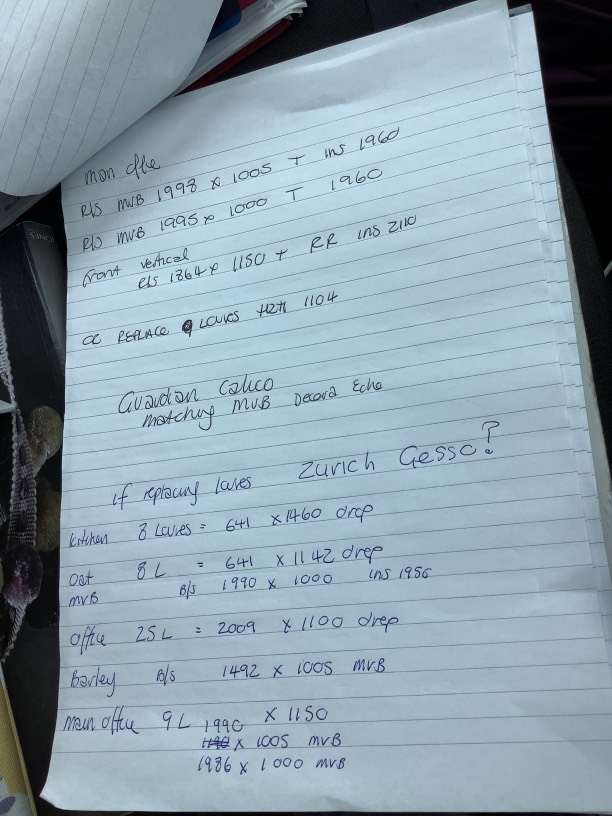 main office
R/S MVB 1998 x 1005 T ins 1960
R/S MVB 1995 x 1000 T 1960
front vertical
R/S 1864 x 1150 + RR ins 2110
or REPLACE 9 LOUVES 1104
Guardian Calico
matching MVB Decora Echo
If replacing Louves Zurich Gesso?
Kitchen 8 Louves = 641 x 1460 drop
Oat 8 L = 641 x 1142 drop
MVB B/S 1990 x 1000 ins 1956
office 25 L = 2009 x 1100 drop
Barley B/S 1492 x 1005 MVB
Main office 9 L 1990 x 1150
x 1005 MVB
1986 x 1000 MVB